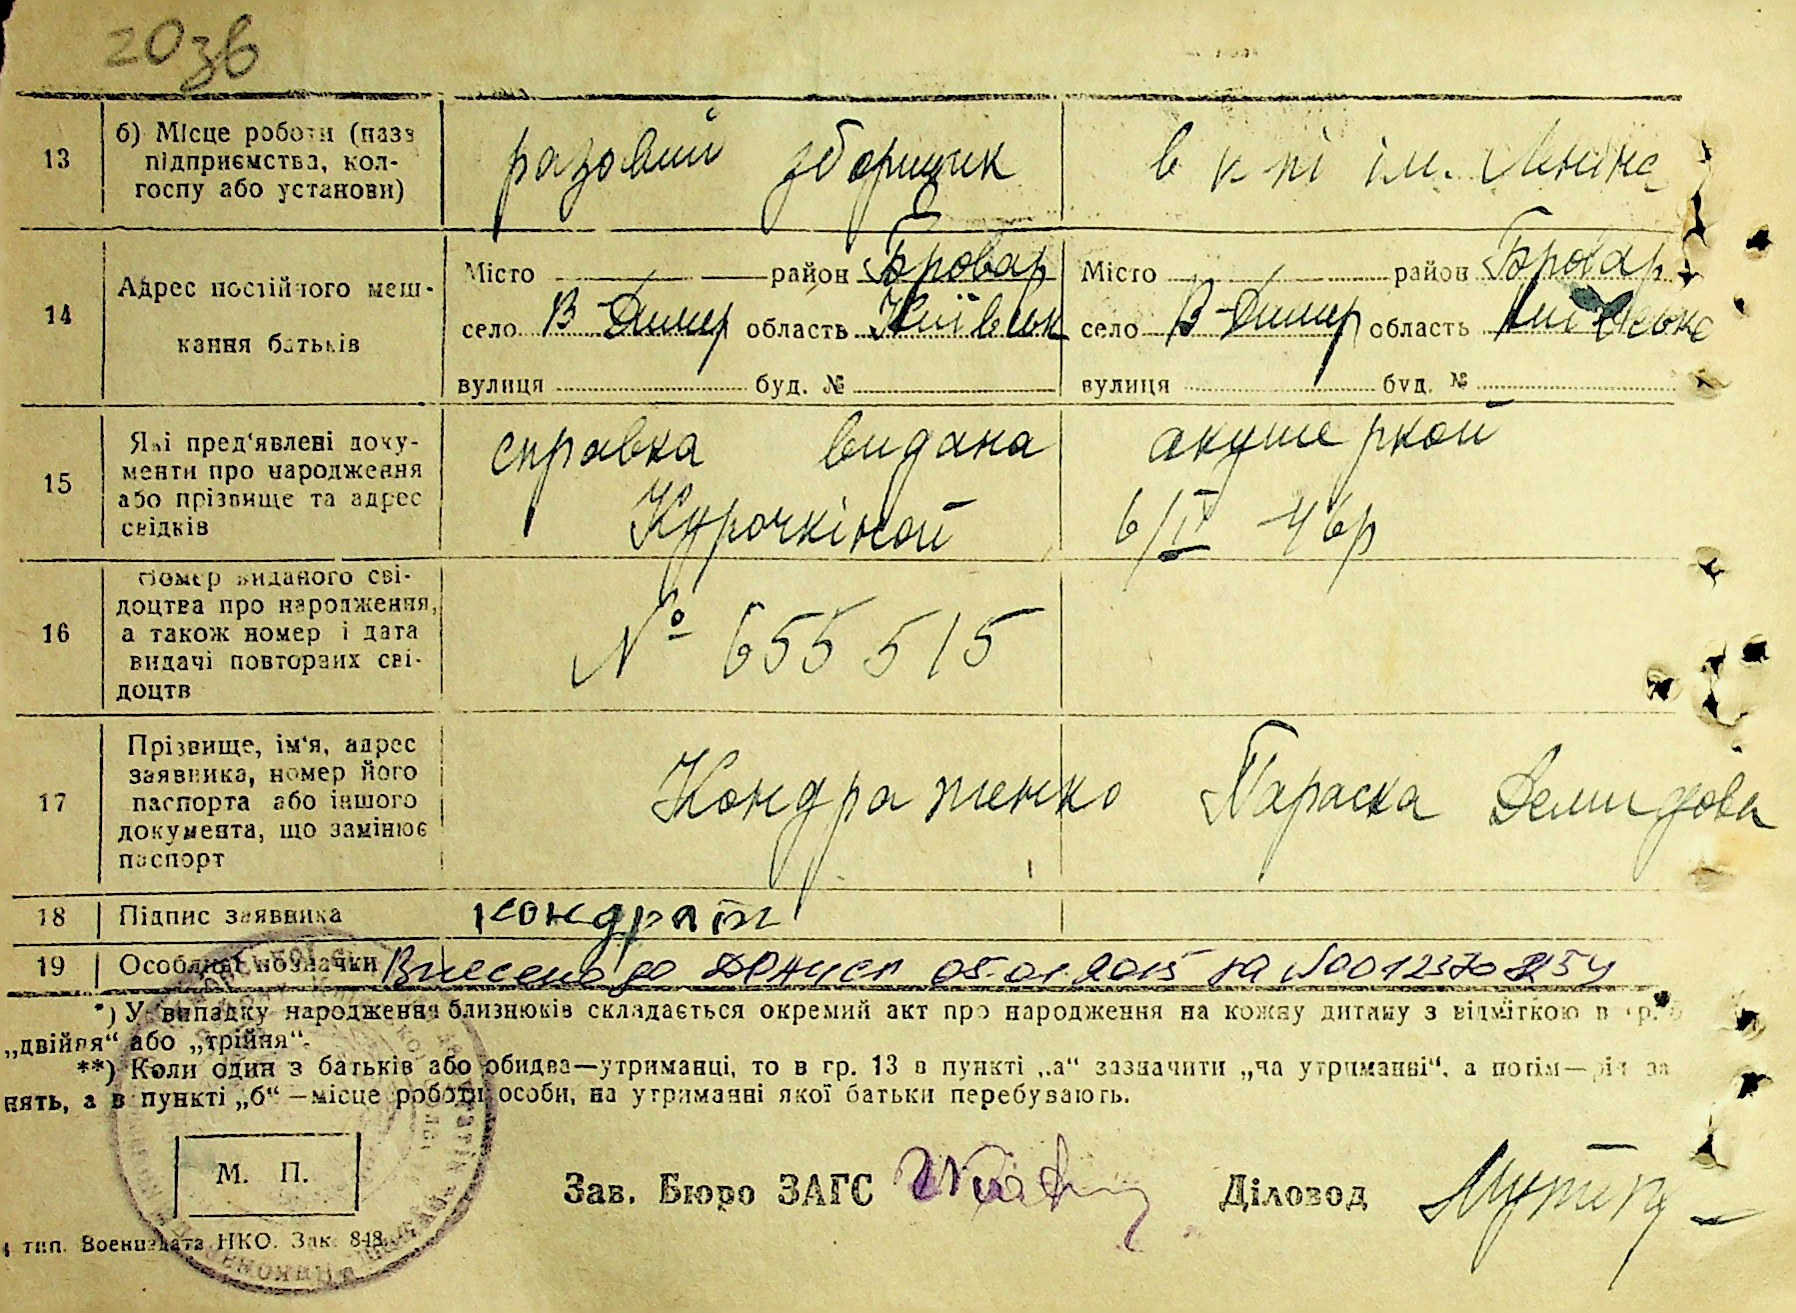 20зв
13 б) Місце роботи (назв разовий зборщик в к-пі ім. Леніна
підприємства, кол-
госпу або установи)
14 Адрес постійного меш-
кання батьків
Місто район Бровар Місто район Бровар
село В-Димер область Київськ село В-Димер область Київська
вулиця буд. № вулиця буд. №
15 Які пред'явлені доку-
менти про народження
або прізвище та адрес
свідків
справка видана акушеркой
Курочкіной 6/IV 46р
16 Номер виданого сві-
доцтва про народження,
а також номер і дата
видачі повторних сві-
доцтв
№ 655515
17 Прізвище, ім'я, адрес
заявника, номер його
паспорта або іншого
документа, що замінює
паспорт
Кондратенко Параска Демидовa
18 Підпис заявника Кондрат
19 Особливі позначки Внесено до ДРАЦСГ 05.01.2015 за №0012370
*) У випадку народження близнюків складається окремий акт про народження на кожну дитину з відміткою в гр. 6
„двійня“ або „трійня“.
**) Коли один з батьків або обидва—утриманці, то в гр. 13 в пункті „а“ зазначити „на утриманні“, а потім—рід за
нять, а в пункті „б“ —місце роботи особи, на утриманні якої батьки перебувають.
М. П.
Зав. Бюро ЗАГС Діловод
тип. Воениздата НКО. Зак. 848